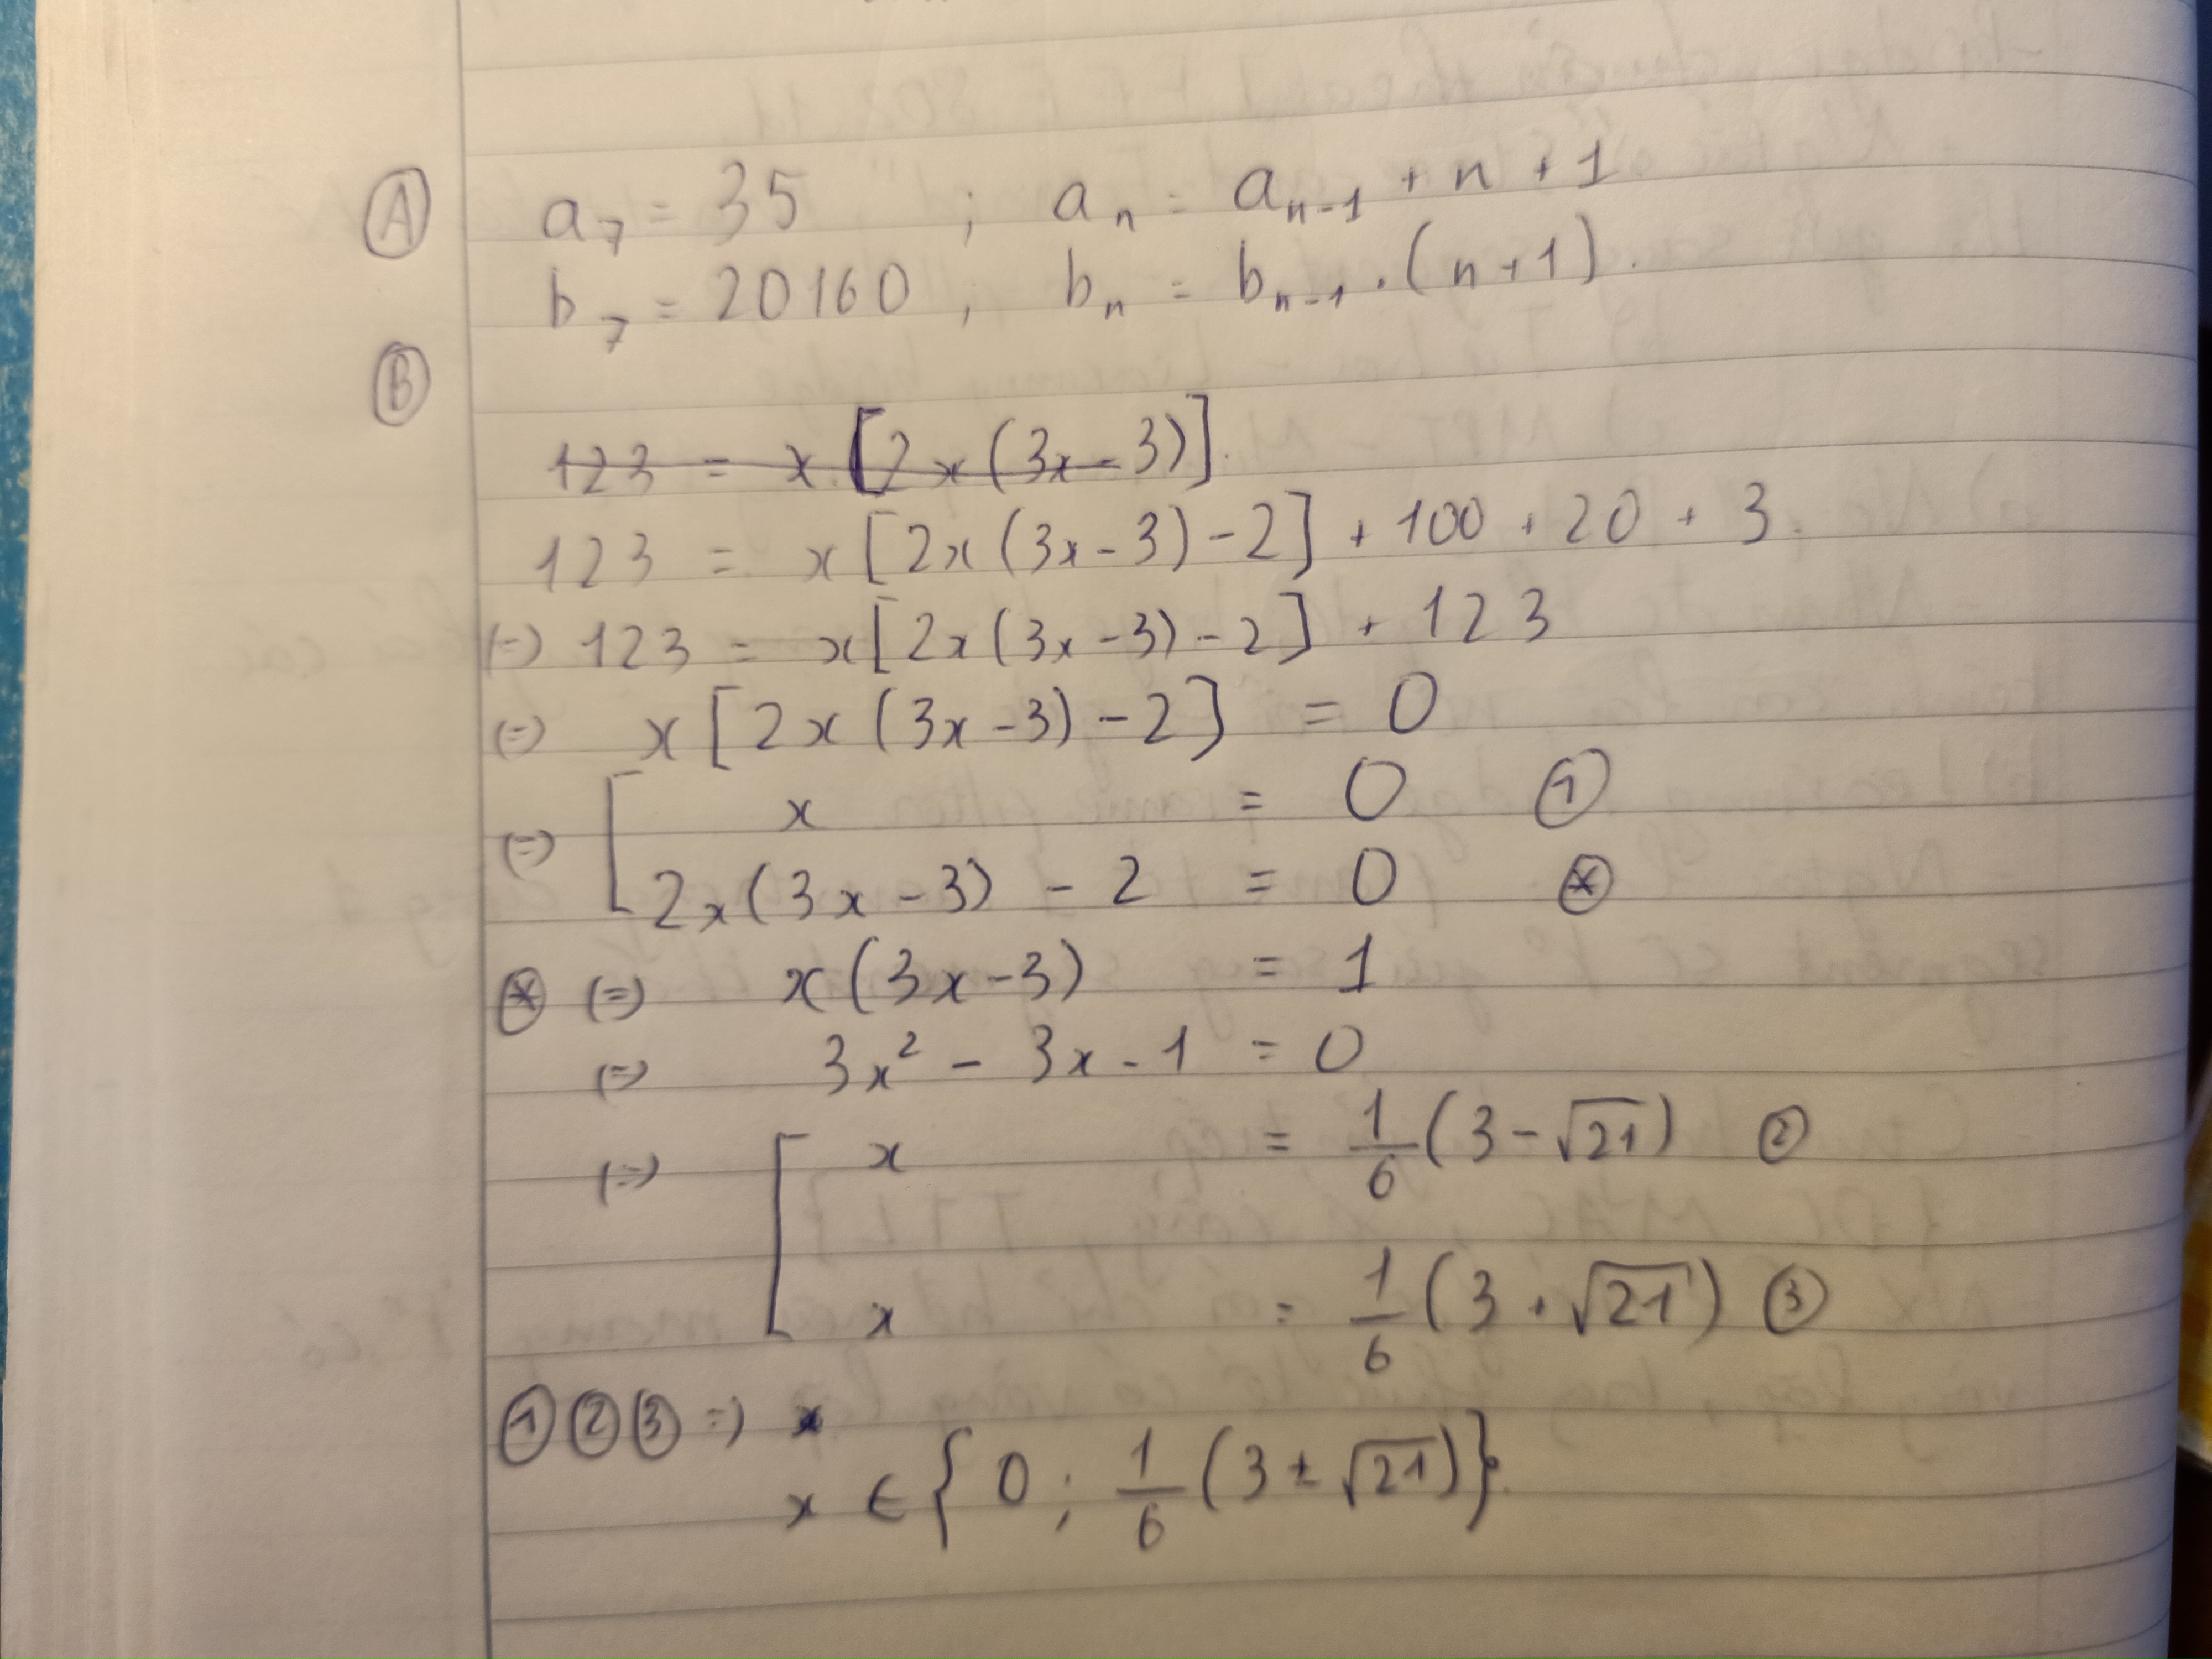 Ⓐ a₇ = 35 ; aₙ = aₙ₋₁ + n + 1
b₇ = 20160 ; bₙ = bₙ₋₁ . (n+1).
Ⓑ
123 = x [2x(3x-3)].
123 = x[2x(3x-3)-2] + 100 + 20 + 3.
(=) 123 = x[2x(3x-3)-2] + 123
(=) x[2x(3x-3)-2] = 0
(=) [ x = 0 ①
2x(3x-3) - 2 = 0 ⊛
⊛ (=) x(3x-3) = 1
(=) 3x² - 3x - 1 = 0
(=) [ x = 1/6 (3-√21) ②
x = 1/6 (3+√21) ③
①②③ =) x
x ∈ {0; 1/6 (3±√21)}.